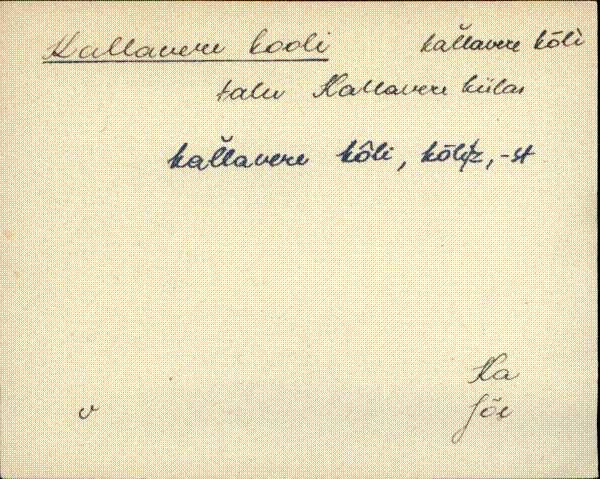 Kallavere kooli kallavere kōli
talu Kallavere külas
kallavere kōli, kōliz, -st
Ka
Jõe
v